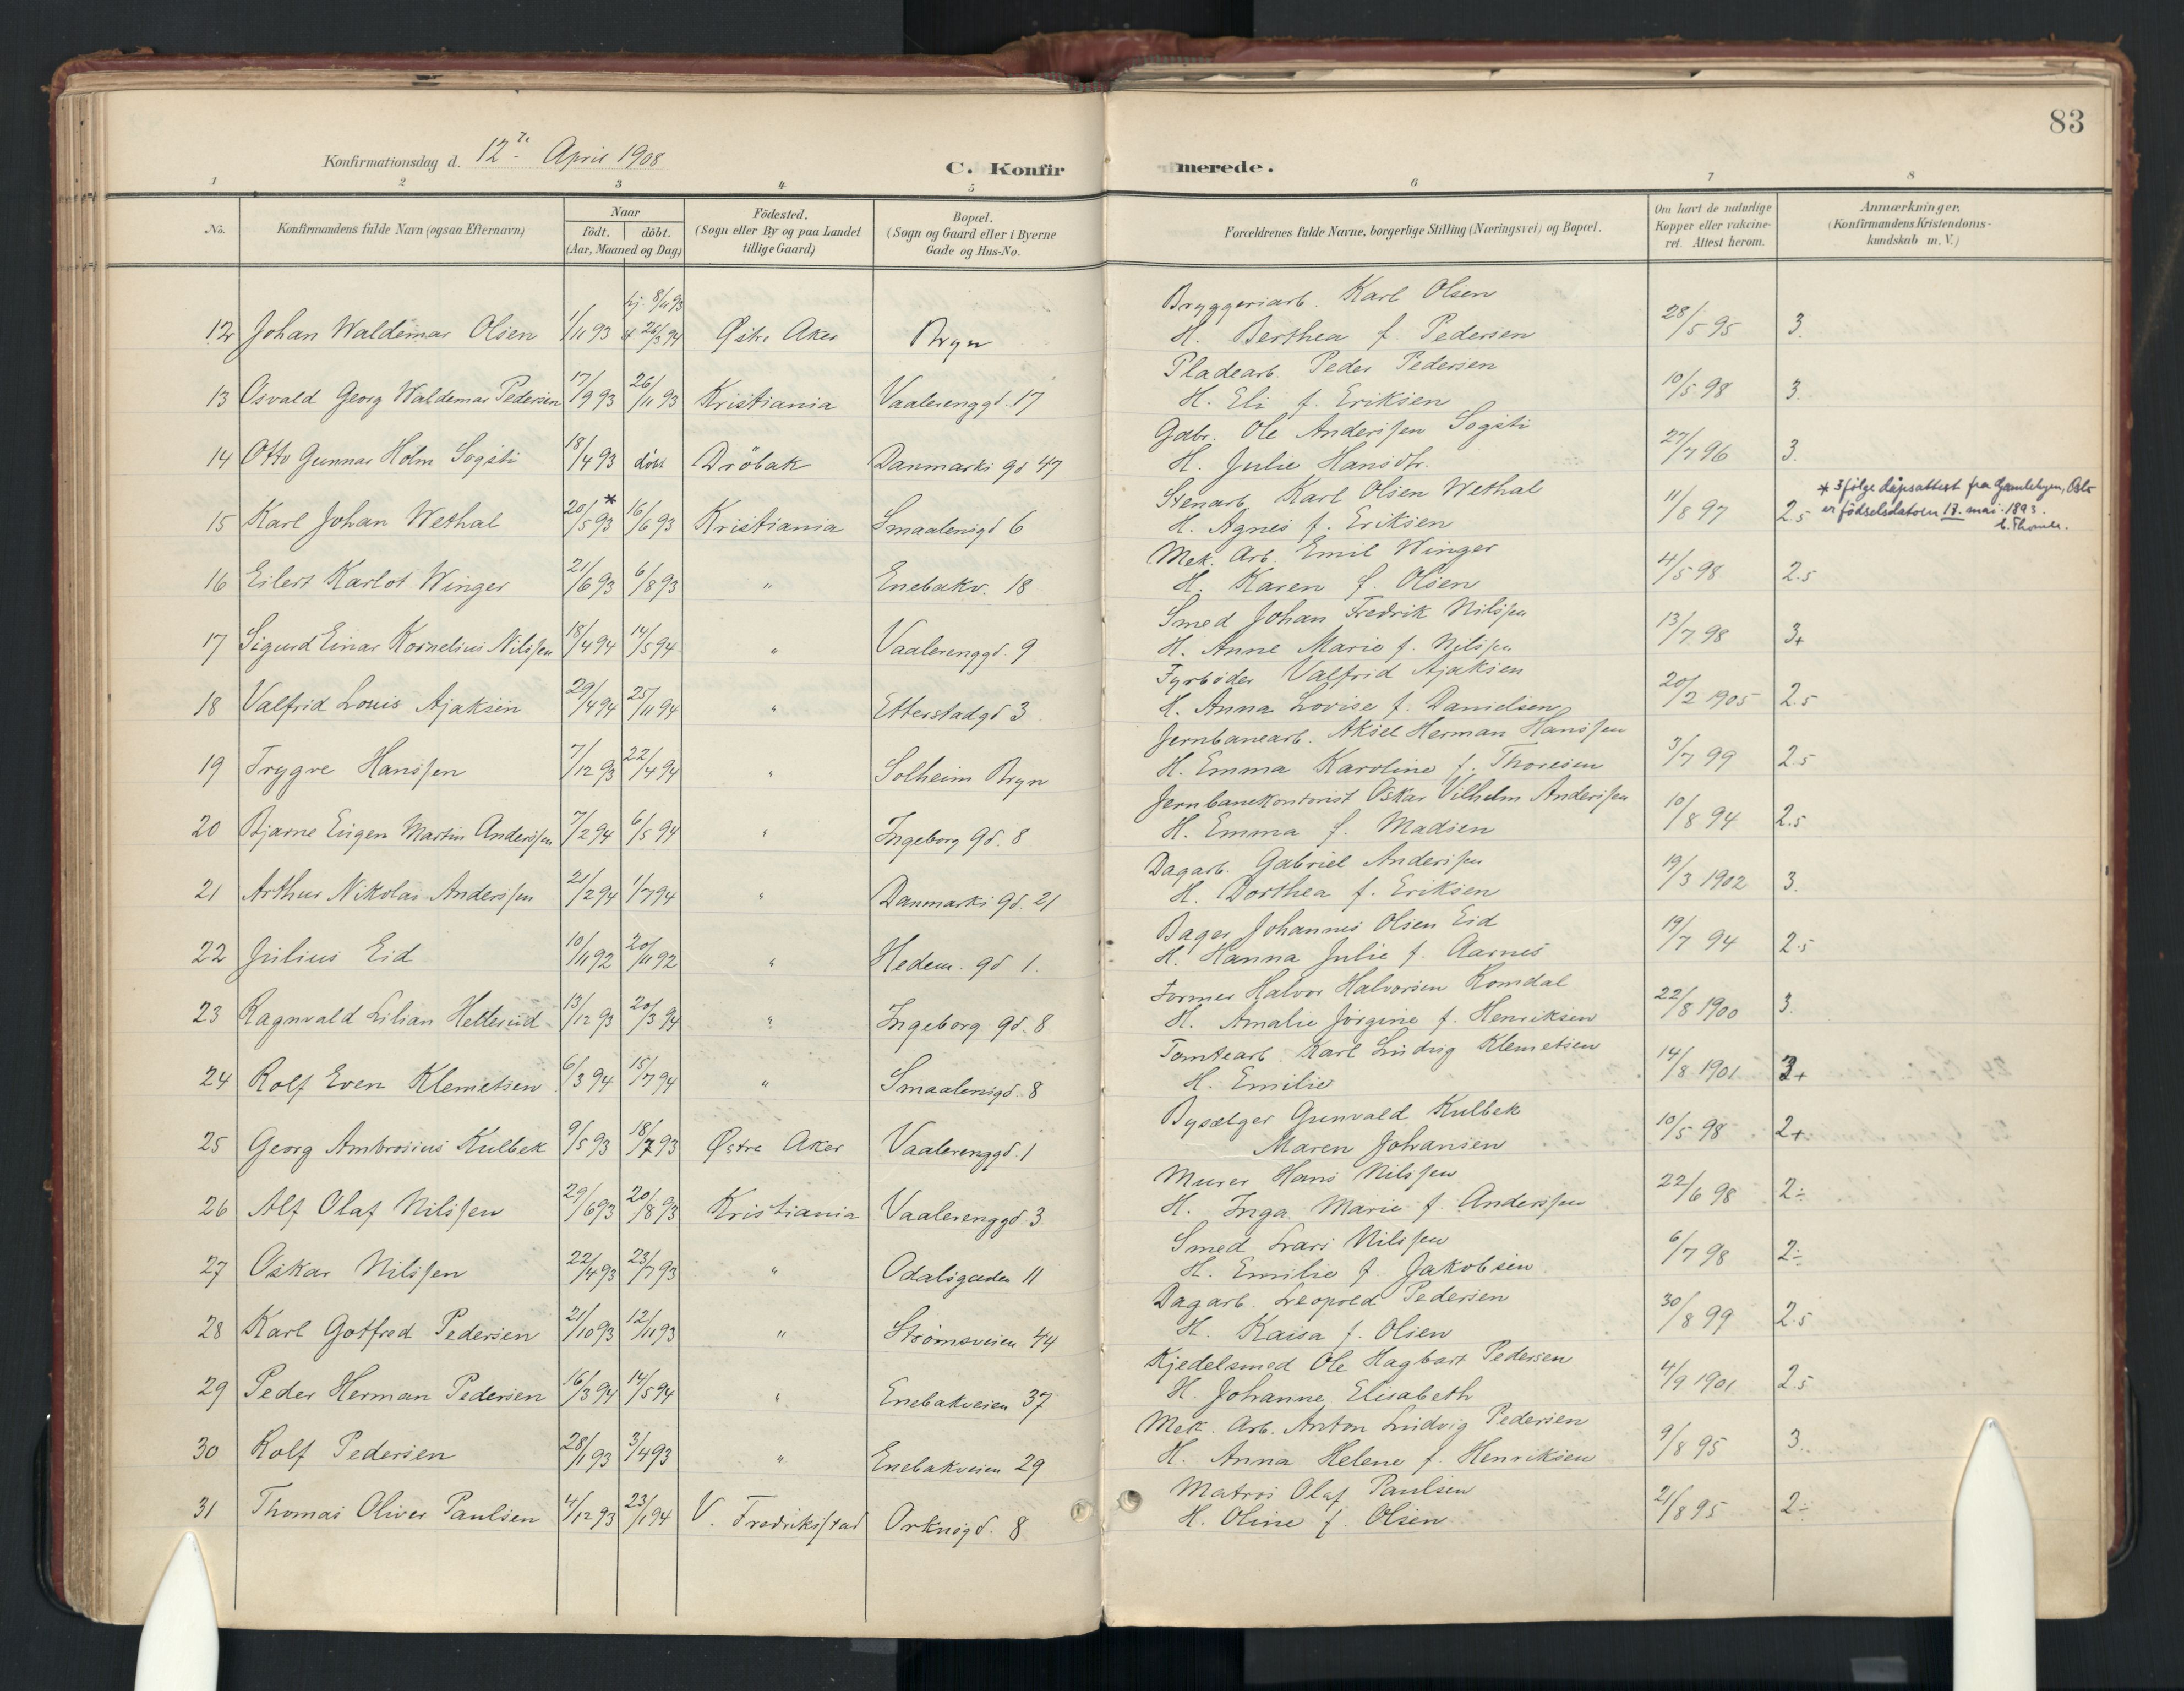 83
Konfirmationsdag d. 12te April 1908
C. Konfir merede.
1 2 3 4 5 6 7 8
No. Konfirmandens fulde Navn (ogsaa Efternavn) Naar født. døbt. (Aar, Maaned og Dag) Fødested. (Sogn eller By og paa Landet tillige Gaard) Bopæl. (Sogn og Gaard eller i Byerne Gade og Hus-No. Forældrenes fulde Navne, borgerlige Stilling (Næringsvei) og Bopæl. Om havt de naturlige Kopper eller vakcineret. Attest herom. Anmærkninger. (Konfirmandens Kristendomskundskab m. V.)
hj. 8/11 93 Bryggeriarb. Karl Olsen
12 Johan Waldemar Olsen 1/11 93 k. 26/3 94 Østre Aker Bryn H. Berthea f. Pedersen 28/5 95 3.
Pladearb. Peder Pedersen
13 Osvald Georg Waldemar Pedersen 17/9 93 26/11 93 Kristiania Vaalerenggd. 17 H. Eli f. Eriksen 10/5 98 3.
Ole Anderssen Sogsti
14 Otto Gunnar Holm Sogsti 18/4 93 døbt Drøbak Danmarks gd 47 H. Julie Hansdtr. 27/7 96 3.
Stenarb. Karl Olsen Wethal * Ifølge dåpsattest fra Gamlebyen, Oslo
15 Karl Johan Wethal 20/5 93 * 16/6 93 Kristiania Smaalensgd 6 H. Agnes f. Eriksen 11/8 97 2.5 er fødselsdatoen 18. mai 1893.
Mek. Arb. Emil Winger
16 Eilert Karlot Winger 21/6 93 6/8 93 " Enebakv. 18 H. Karen f. Olsen 4/5 98 2.5
Smed Johan Fredrik Nilssen
17 Sigurd Einar Kornelius Nilssen 18/4 94 14/5 94 " Vaalerenggd. 9 H. Anne Marie f. Nilssen 13/7 98 3+
Fyrbøder Valfrid Ajaksen
18 Valfrid Louis Ajaksen 29/4 94 25/11 94 " Etterstadgd 3 H. Anna Lovise f. Danielsen 20/2 1905 2.5
Jernbanearb. Aksel Herman Hanssen
19 Trygve Hanssen 7/12 93 22/4 94 " Solheim Bryn H. Emma Karoline f. Thoresen 3/7 99 2.5
Jernbanekontorist Oskar Vilhelm Anderssen
20 Bjarne Eugen Martin Anderssen 7/2 94 6/5 94 " Ingeborg gd. 8 H. Emma f. Madsen 10/8 94 2.5
Dagarb. Gabriel Anderssen
21 Arthur Nikolai Anderssen 21/2 94 1/7 94 " Danmarks gd. 21 H. Dorthea f. Eriksen 19/3 1902 3.
Bager Johannes Olsen Eid
22 Julius Eid 10/11 92 20/11 92 " Hedem. gd 1. H. Hanna Julie f. Aarnes 19/7 94 2.5
Former Halvor Halvorsen Romdal
23 Ragnvald Lilian Hellerud 13/12 93 20/3 94 " Ingeborg gd. 8 H. Amalie Jørgine f. Henriksen 22/8 1900 3.
Tomtearb. Karl Ludvig Klemetsen
24 Rolf Even Klemetsen 6/3 94 15/7 94 " Smaalensgd. 8 H. Emilie 14/8 1901 3+
Bysælger Gunvald Kulbek
25 Georg Ambrosius Kulbek 9/5 93 18/7 93 Østre Aker Vaalerenggd. 1 Maren Johansen 10/5 98 2+
Murer Hans Nilssen
26 Alf Olaf Nilssen 29/6 93 20/8 93 Kristiania Vaalerenggd. 3 H. Inga Marie f. Anderssen 22/6 98 2÷
Smed Lars Nilssen
27 Oskar Nilssen 22/4 93 23/7 93 " Odalsgaden 11 H. Emilie f. Jakobsen 6/7 98 2÷
Dagarb. Leopold Pedersen
28 Karl Gotfred Pedersen 21/10 93 12/11 93 " Strømsveien 44 H. Kaisa f. Olsen 30/8 99 2.5
Kjedelsmed Ole Hagbart Pedersen
29 Peder Herman Pedersen 16/3 94 14/5 94 " Enebakveien 37 H. Johanne Elisabeth 4/9 1901 2.5
Mek. Arb. Anton Ludvig Pedersen
30 Rolf Pedersen 28/1 93 3/4 93 " Enebakveien 29 H. Anna Helene f. Henriksen 9/8 95 3.
Matros Olaf Paulsen
31 Thomas Oliver Paulsen 4/12 93 23/1 94 V. Fredriksstad Orknøgd. 8 H. Oline f. Olsen 21/8 95 2÷